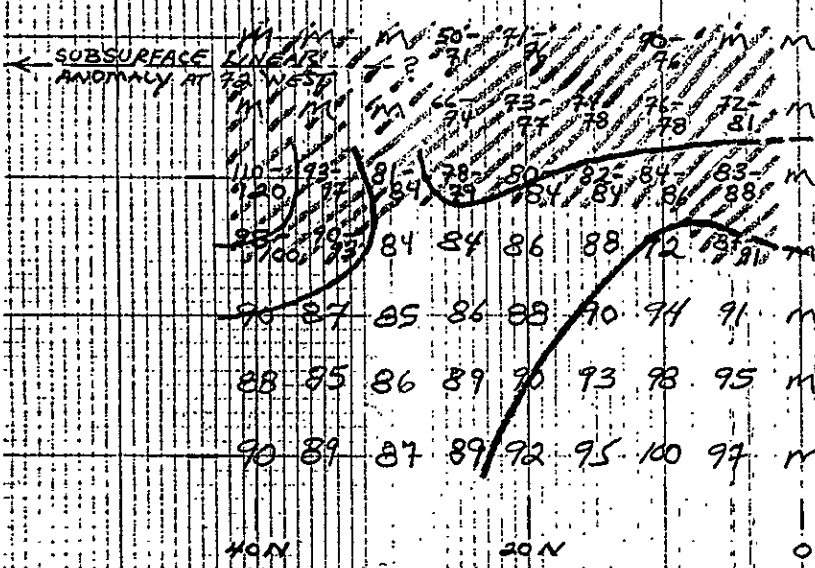 m m m 50-71 71- 70-76 m m
← SUBSURFACE LINEAR ?
ANOMALY AT 72 WEST
m m m 66-74 73-77 78 76-78 72-81 m
110-120 93-97 81-84 78-79 80-84 82-84 84-86 83-88 m
100 90- 84 84 86 88 92 87-91 m
90 87 85 86 88 90 94 91 m
88 85 86 89 90 93 98 95 m
90 89 87 89 92 95 100 97 m
40N 20N 0